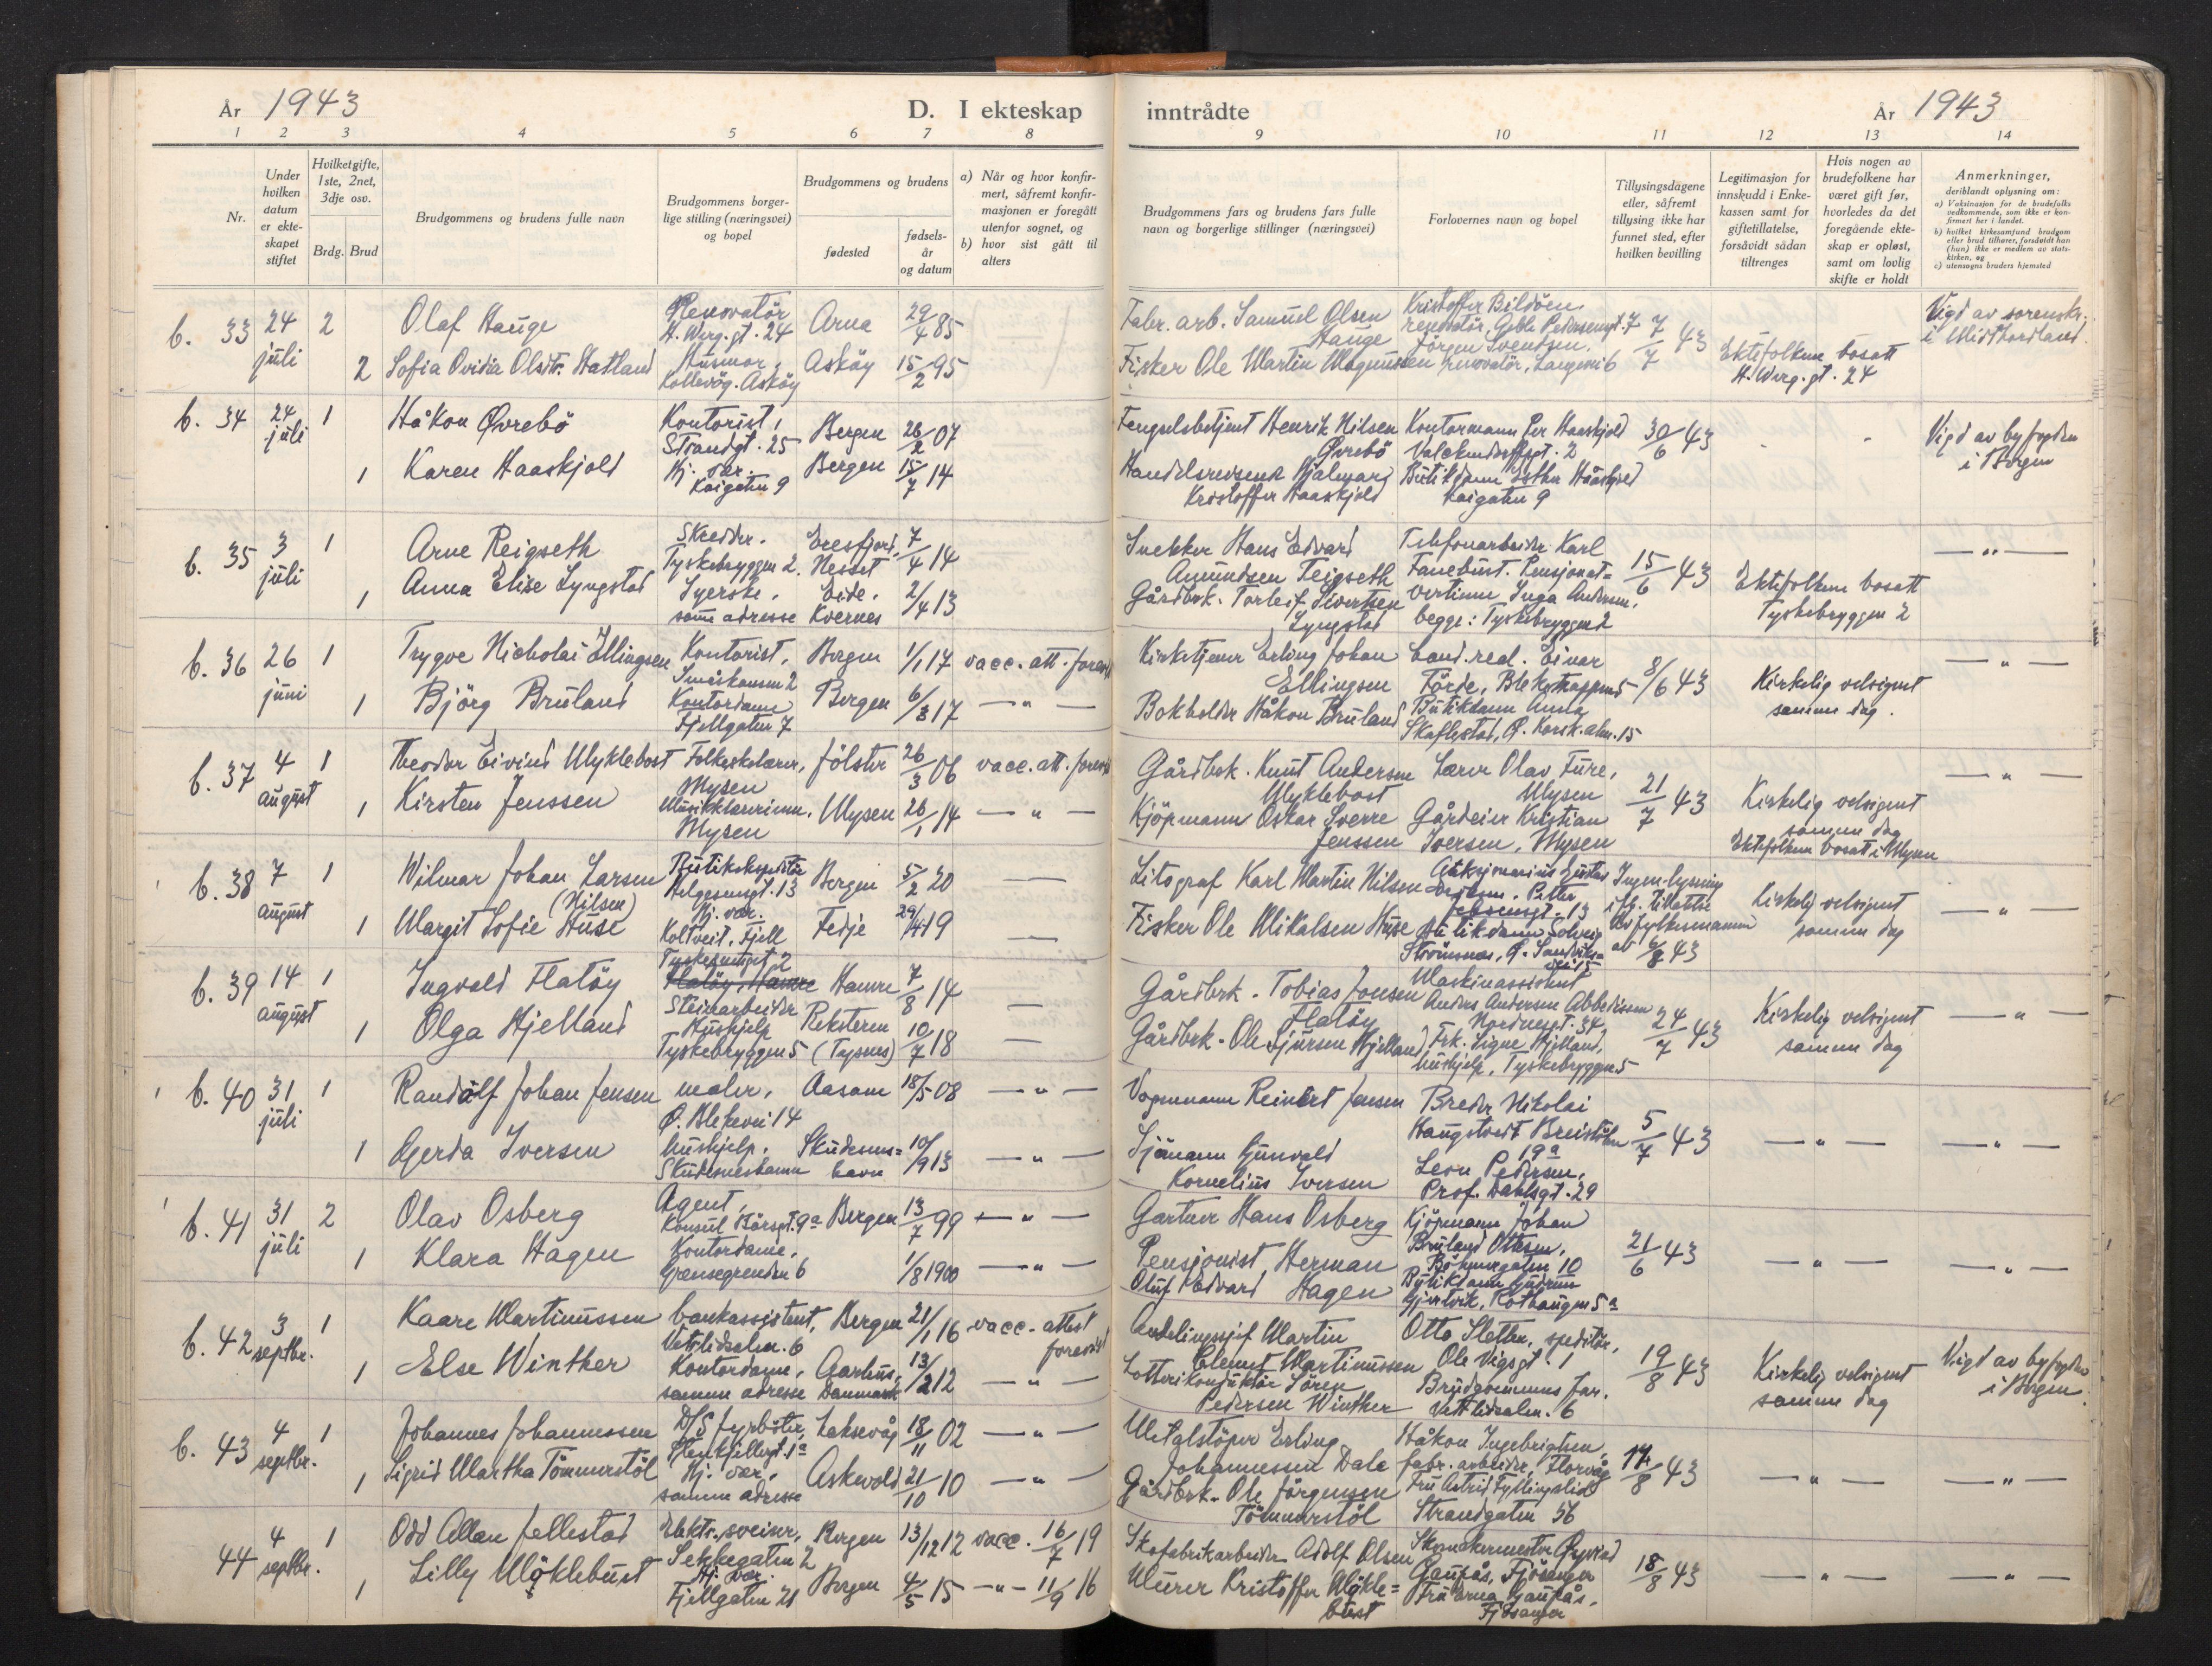 År 1943
D. I ekteskap
inntrådte
År 1943
1 2 3 4 5 6 7 8 9 10 11 12 13 14
Nr.
Under hvilken datum er ekteskapet stiftet
Hvilket gifte, 1ste, 2net, 3dje osv.
Brdg. Brud
Brudgommens og brudens fulle navn
Brudgommens borgerlige stilling (næringsvei) og bopel
Brudgommens og brudens
fødested
fødselsår og datum
a) Når og hvor konfirmert, såfremt konfirmasjonen er foregått utenfor sognet, og
b) hvor sist gått til alters
Brudgommens fars og brudens fars fulle navn og borgerlige stillinger (næringsvei)
Forlovernes navn og bopel
Tillysingsdagene eller, såfremt tillysing ikke har funnet sted, efter hvilken bevilling
Legitimasjon for innskudd i Enkekassen samt for giftetillatelse, forsåvidt sådan tiltrenges
Hvis nogen av brudefolkene har været gift før, hvorledes da det foregående ekteskap er opløst, samt om lovlig skifte er holdt
Anmerkninger, deriblandt oplysning om:
a) Vaksinasjon for de brudefolks vedkommende, som ikke er konfirmert her i landet.
b) hvilket kirkesamfund brudgom eller brud tilhører, forsåvidt han (hun) ikke er medlem av statskirken, og
c) utensogns bruders hjemsted
b. 33 24 juli 2 Olaf Hauge
Renovatör H. Werg.gt. 24 Arna 29/4 85
Fabr. arb. Samuel Olsen Hauge
Kristoffer Bildöen renovatör, Geble Pedersensgt. 7
7/7 43
Vigd av sorenskr. i Midthordland.
2 Sofia Ovidia Olsdtr. Hatland
Husmor, Kollevåg. Asköy Asköy 15/2 95
Fisker Ole Martin Magnussen
Jörgen Svendsen, renovatör
Ektefolkene bosatt H. Werg. gt. 24
b. 34 24 juli 1 Håkon Øvrebö
Kontorist, Strandgt. 25 Bergen 26/2 07
Fengselsbetjent Henrik Nilsen Øvrebö
Kontormann Per Haaskjold Valckendorffsgt. 2
30/6 43
Vigd av byfogden i Bergen
1 Karen Haaskjold
Hj. vær. Kaigaten 9 Bergen 15/7 14
Handelsreisende Hjalmar Kristoffer Haaskjold
Butikdame Esther Haaskjold Kaigaten 9
b. 35 3 juli 1 Arne Reigseth
Skredder. Tyskebryggen 2. Eresfjord, Nesset 7/4 14
Snekker Hans Edvard Amundsen Teigseth
Telefonarbeider Karl Fanebust. Pensjonatvertinne Inga Andersen, begge: Tyskebryggen 2
15/6 43
Ektefolkene bosatt Tyskebryggen 2
— " —
1 Anna Elise Lyngstad
Syerske. samme adresse Eide. Kvernes 2/4 13
Gårdbrk. Torleif Sivertsen Lyngstad
b. 36 26 juni 1 Trygve Nicholai Ellingsen
Kontorist, Bergen 1/1 17 vacc. att. forevist
Kirketjener Erling Johan Ellingsen
Cand. real. Einar Förde,
8/6 43
Kirkelig velsignet samme dag.
— " —
1 Björg Bruland
Kontordame Fjellgaten 7 Bergen 6/3 17 — " —
Bokholder Håkon Bruland
Butikdame Anna Skaflestad,
b. 37 4 august 1 Theodor Eivind Myklebost
Folkeskolelærer, Mysen Jölster 26/3 06 vacc. att. forevist
Gårdbrk. Knut Andersen Myklebost
Lærer Olav Fure, Mysen
21/7 43
Kirkelig velsignet samme dag
Ektefolkene bosatt i Mysen
— " —
1 Kirsten Jenssen
Musikklærerinne, Mysen Mysen 26/1 14 — " —
Kjöpmann Oskar Sverre Jenssen
Gårdeier Kristian Iversen, Mysen
b. 38 7 august 1 Wilmar Johan Larsen (Nilsen)
Butikekspeditör Helgesensgt. 13 Bergen 5/2 20 —
Litograf Karl Martin Nilsen
Ingen lysning
Kirkelig velsignet samme dag
— " —
1 Margit Sofie Huse
Hj. vær. Koltveit, Fjell Fedje 29/4 19 —
Fisker Ole Mikalsen Huse
Butikdame Solveig Strömsnes,
av fylkesmannen
43
b. 39 14 august 1 Ingvald Flatöy
Flatöy, Hamre
Steinarbeider Hamre 7/8 14 —
Gårdbrk. Tobias Jonsen Flatöy
Maskinassistent Anders Andersen Abbedissen Nordnesgt. 34,
24/7 43
Kirkelig velsignet samme dag
— " —
1 Olga Hjelland
Hushjelp Tyskebryggen 5 Reksteren (Tysnes) 10/7 18 —
Gårdbrk. Ole Sjursen Hjelland
Frk. Signe Hjelland, hushjelp, Tyskebryggen 5
b. 40 31 juli 1 Randolf Johan Jensen
maler, Ø. Blekevei 14 Aasane 18/5 08 — " —
Vognmann Reinert Jensen
Nikolai Haugstvedt Breistölen 19a
5/7 43
— " —
— " —
1 Gerda Iversen
hushjelp. Skudesneshavn Skudesneshavn 10/9 13 — " —
Sjömann Gunvald Kornelius Iversen
Leon Pedersen, Prof. Dahlsgt. 29
b. 41 31 juli 2 Olav Osberg
Agent, Konsul Börsgt. 9a Bergen 13/7 99 — " —
Gartner Hans Osberg
Kjöpmann Johan Bruland Ottesen, Böhmergaten 10
21/6 43
— " —
— " —
1 Klara Hagen
Kontordame, Grensegrenden 6 1/8 1900 — " —
Pensjonist Herman Oluf Edvard Hagen
Butikdame Gudrun Gjertvik, Rothaugen 5a
b. 42 3 septbr. 1 Kaare Martinussen
bankassistent, Vetrlidsalm. 6 Bergen 21/1 16 vacc. attest forevist
Avdelingssjef Martin Clement Martinussen
Otto Sletten, speditör, Ole Vigsgt. 1
19/8 43
Kirkelig velsignet samme dag
Vigd av byfogden i Bergen.
1 Else Winther
Kontordame, samme adresse Aarhus, Danmark 13/2 12 — " —
Lotterikonduktör Sören Pedersen Winther
Brudgommens far. Vetrlidsalm. 6
b. 43 4 septbr. 1 Johannes Johannessen
D/S fyrböter, Laksevåg 18/11 02 — " —
Metalstöper Erling Johannessen Dale
Håkon Ingebrigtsen, fabr. arbeider, Florvåg
14/8 43
— " —
— " —
1 Sigrid Martha Tömmerstöl
Hj. vær. samme adresse Askvoll 21/10 10 — " —
Gårdbrk. Ole Jörgensen Tömmerstöl
Fru Astrid Fyllingslid Strandgaten 56
44 4 septbr. 1 Odd Allan Jellestad
Elektr. sveiser, Sekkegaten 2 Bergen 13/12 12 vacc. 16/7 19
Skofabrikarbeider Adolf Olsen
Skomakermester Øyvind Gaupås, Fjösanger
18/8 43
— " —
— " —
1 Lilly Möklebust
Hj. vær. Fjellgaten 21 Bergen 4/5 15 — " — 11/9 16
Murer Kristoffer Möklebust
Fru Erna Gaupås, Fjösanger